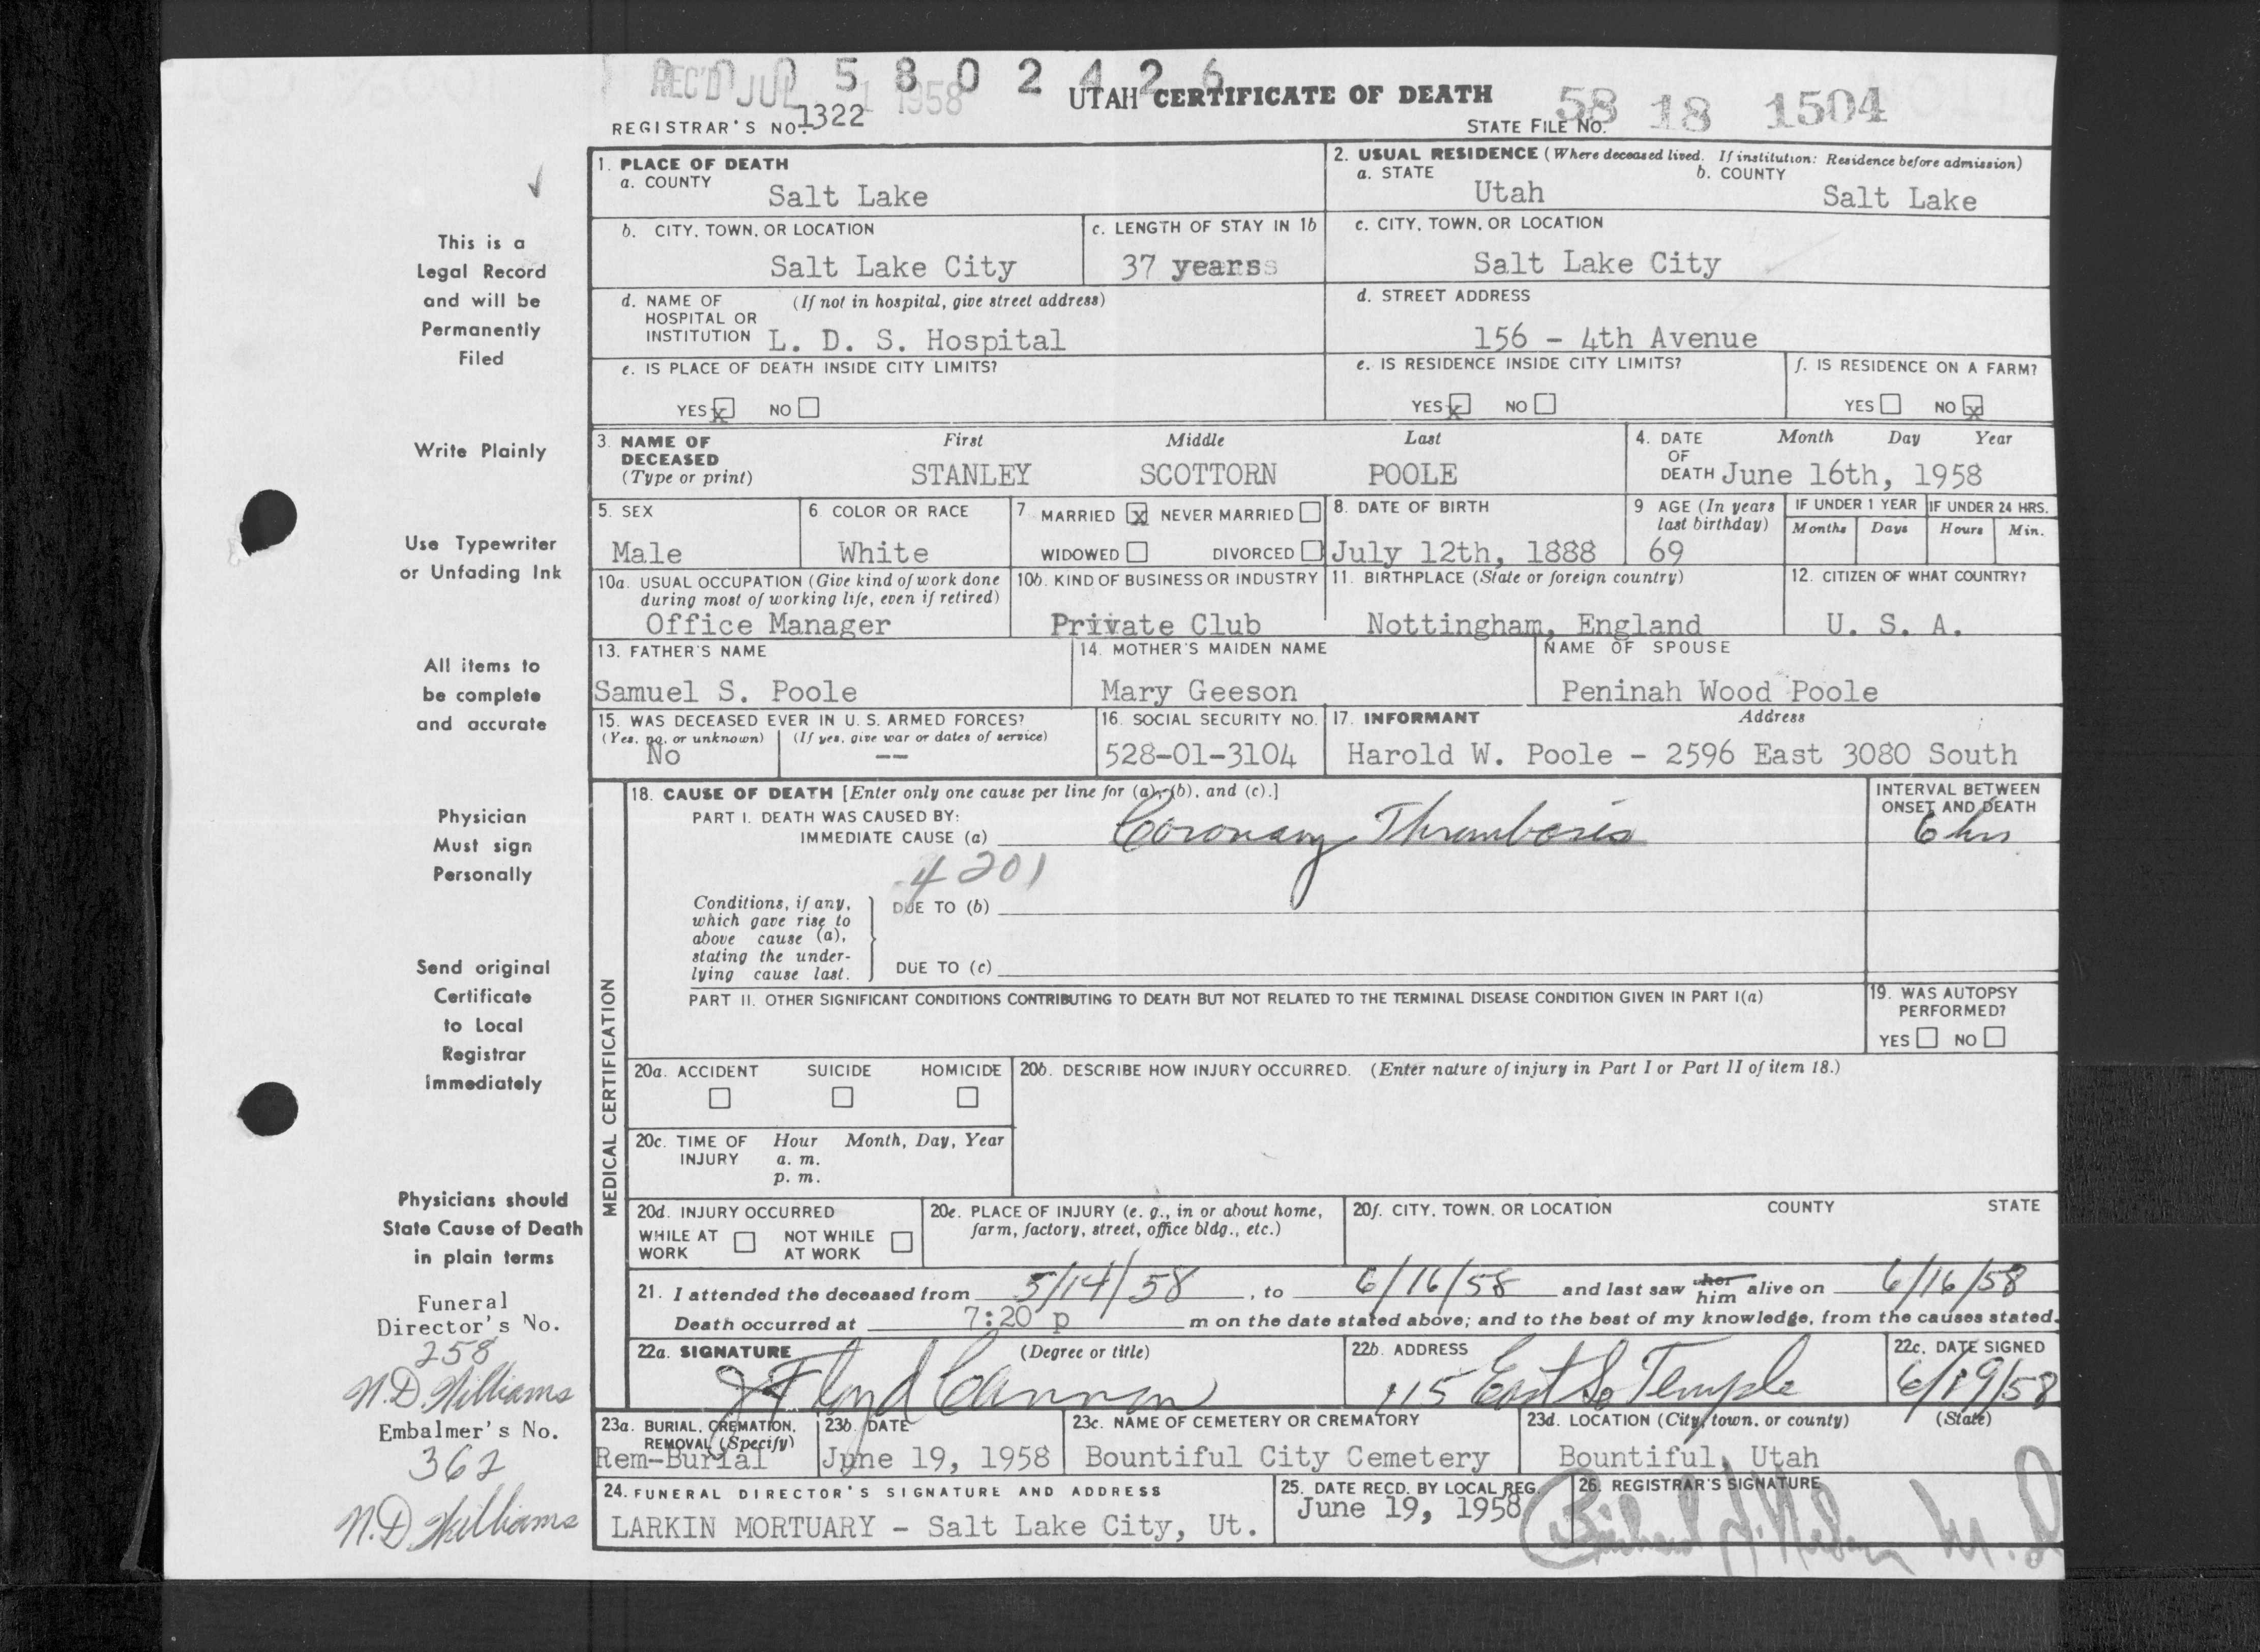 REC'D JUL 1 1958
0 0 0 5 8 0 2 4 2 6
UTAH CERTIFICATE OF DEATH
REGISTRAR'S NO. 1322
STATE FILE NO. 58 18 1504
This is a
Legal Record
and will be
Permanently
Filed
Write Plainly
Use Typewriter
or Unfading Ink
All items to
be complete
and accurate
Physician
Must sign
Personally
Send original
Certificate
to Local
Registrar
immediately
Physicians should
State Cause of Death
in plain terms
Funeral
Director's No.
258
N.D. Williams
Embalmer's No.
362
N.D. Williams
1. PLACE OF DEATH
a. COUNTY
Salt Lake
2. USUAL RESIDENCE (Where deceased lived. If institution: Residence before admission)
a. STATE b. COUNTY
Utah Salt Lake
b. CITY, TOWN, OR LOCATION
Salt Lake City
c. LENGTH OF STAY IN 1b
37 years
c. CITY, TOWN, OR LOCATION
Salt Lake City
d. NAME OF (If not in hospital, give street address)
HOSPITAL OR
INSTITUTION L. D. S. Hospital
d. STREET ADDRESS
156 - 4th Avenue
e. IS PLACE OF DEATH INSIDE CITY LIMITS?
YES x NO
e. IS RESIDENCE INSIDE CITY LIMITS?
YES x NO
f. IS RESIDENCE ON A FARM?
YES NO x
3. NAME OF First Middle Last
DECEASED
(Type or print) STANLEY SCOTTORN POOLE
4. DATE Month Day Year
OF
DEATH June 16th, 1958
5. SEX
Male
6 COLOR OR RACE
White
7 MARRIED x NEVER MARRIED
WIDOWED DIVORCED
8. DATE OF BIRTH
July 12th, 1888
9 AGE (In years
last birthday)
69
IF UNDER 1 YEAR IF UNDER 24 HRS.
Months Days Hours Min.
10a. USUAL OCCUPATION (Give kind of work done
during most of working life, even if retired)
Office Manager
10b. KIND OF BUSINESS OR INDUSTRY
Private Club
11. BIRTHPLACE (State or foreign country)
Nottingham, England
12. CITIZEN OF WHAT COUNTRY?
U. S. A.
13. FATHER'S NAME
Samuel S. Poole
14. MOTHER'S MAIDEN NAME
Mary Geeson
NAME OF SPOUSE
Peninah Wood Poole
15. WAS DECEASED EVER IN U. S. ARMED FORCES?
(Yes, no, or unknown) (If yes, give war or dates of service)
No --
16. SOCIAL SECURITY NO.
528-01-3104
17. INFORMANT Address
Harold W. Poole - 2596 East 3080 South
MEDICAL CERTIFICATION
18. CAUSE OF DEATH [Enter only one cause per line for (a), (b), and (c).]
PART I. DEATH WAS CAUSED BY:
IMMEDIATE CAUSE (a) Coronary Thrombosis
INTERVAL BETWEEN
ONSET AND DEATH
6 hrs
4201
Conditions, if any,
which gave rise to
above cause (a),
stating the under-
lying cause last.
DUE TO (b)
DUE TO (c)
PART II. OTHER SIGNIFICANT CONDITIONS CONTRIBUTING TO DEATH BUT NOT RELATED TO THE TERMINAL DISEASE CONDITION GIVEN IN PART I(a)
19. WAS AUTOPSY
PERFORMED?
YES NO
20a. ACCIDENT SUICIDE HOMICIDE
20b. DESCRIBE HOW INJURY OCCURRED. (Enter nature of injury in Part I or Part II of item 18.)
20c. TIME OF Hour Month, Day, Year
INJURY a. m.
p. m.
20d. INJURY OCCURRED
WHILE AT NOT WHILE
WORK AT WORK
20e. PLACE OF INJURY (e. g., in or about home,
farm, factory, street, office bldg., etc.)
20f. CITY, TOWN, OR LOCATION COUNTY STATE
21. I attended the deceased from 5/14/58, to 6/16/58 and last saw her him alive on 6/16/58
Death occurred at 7:20 p m on the date stated above; and to the best of my knowledge, from the causes stated.
22a. SIGNATURE (Degree or title)
J Floyd Cannon
22b. ADDRESS
115 East So Temple
22c. DATE SIGNED
6/19/58
23a. BURIAL, CREMATION,
REMOVAL (Specify)
Rem-Burial
23b. DATE
June 19, 1958
23c. NAME OF CEMETERY OR CREMATORY
Bountiful City Cemetery
23d. LOCATION (City, town, or county) (State)
Bountiful, Utah
24. FUNERAL DIRECTOR'S SIGNATURE AND ADDRESS
LARKIN MORTUARY - Salt Lake City, Ut.
25. DATE RECD. BY LOCAL REG.
June 19, 1958
26. REGISTRAR'S SIGNATURE
M.D